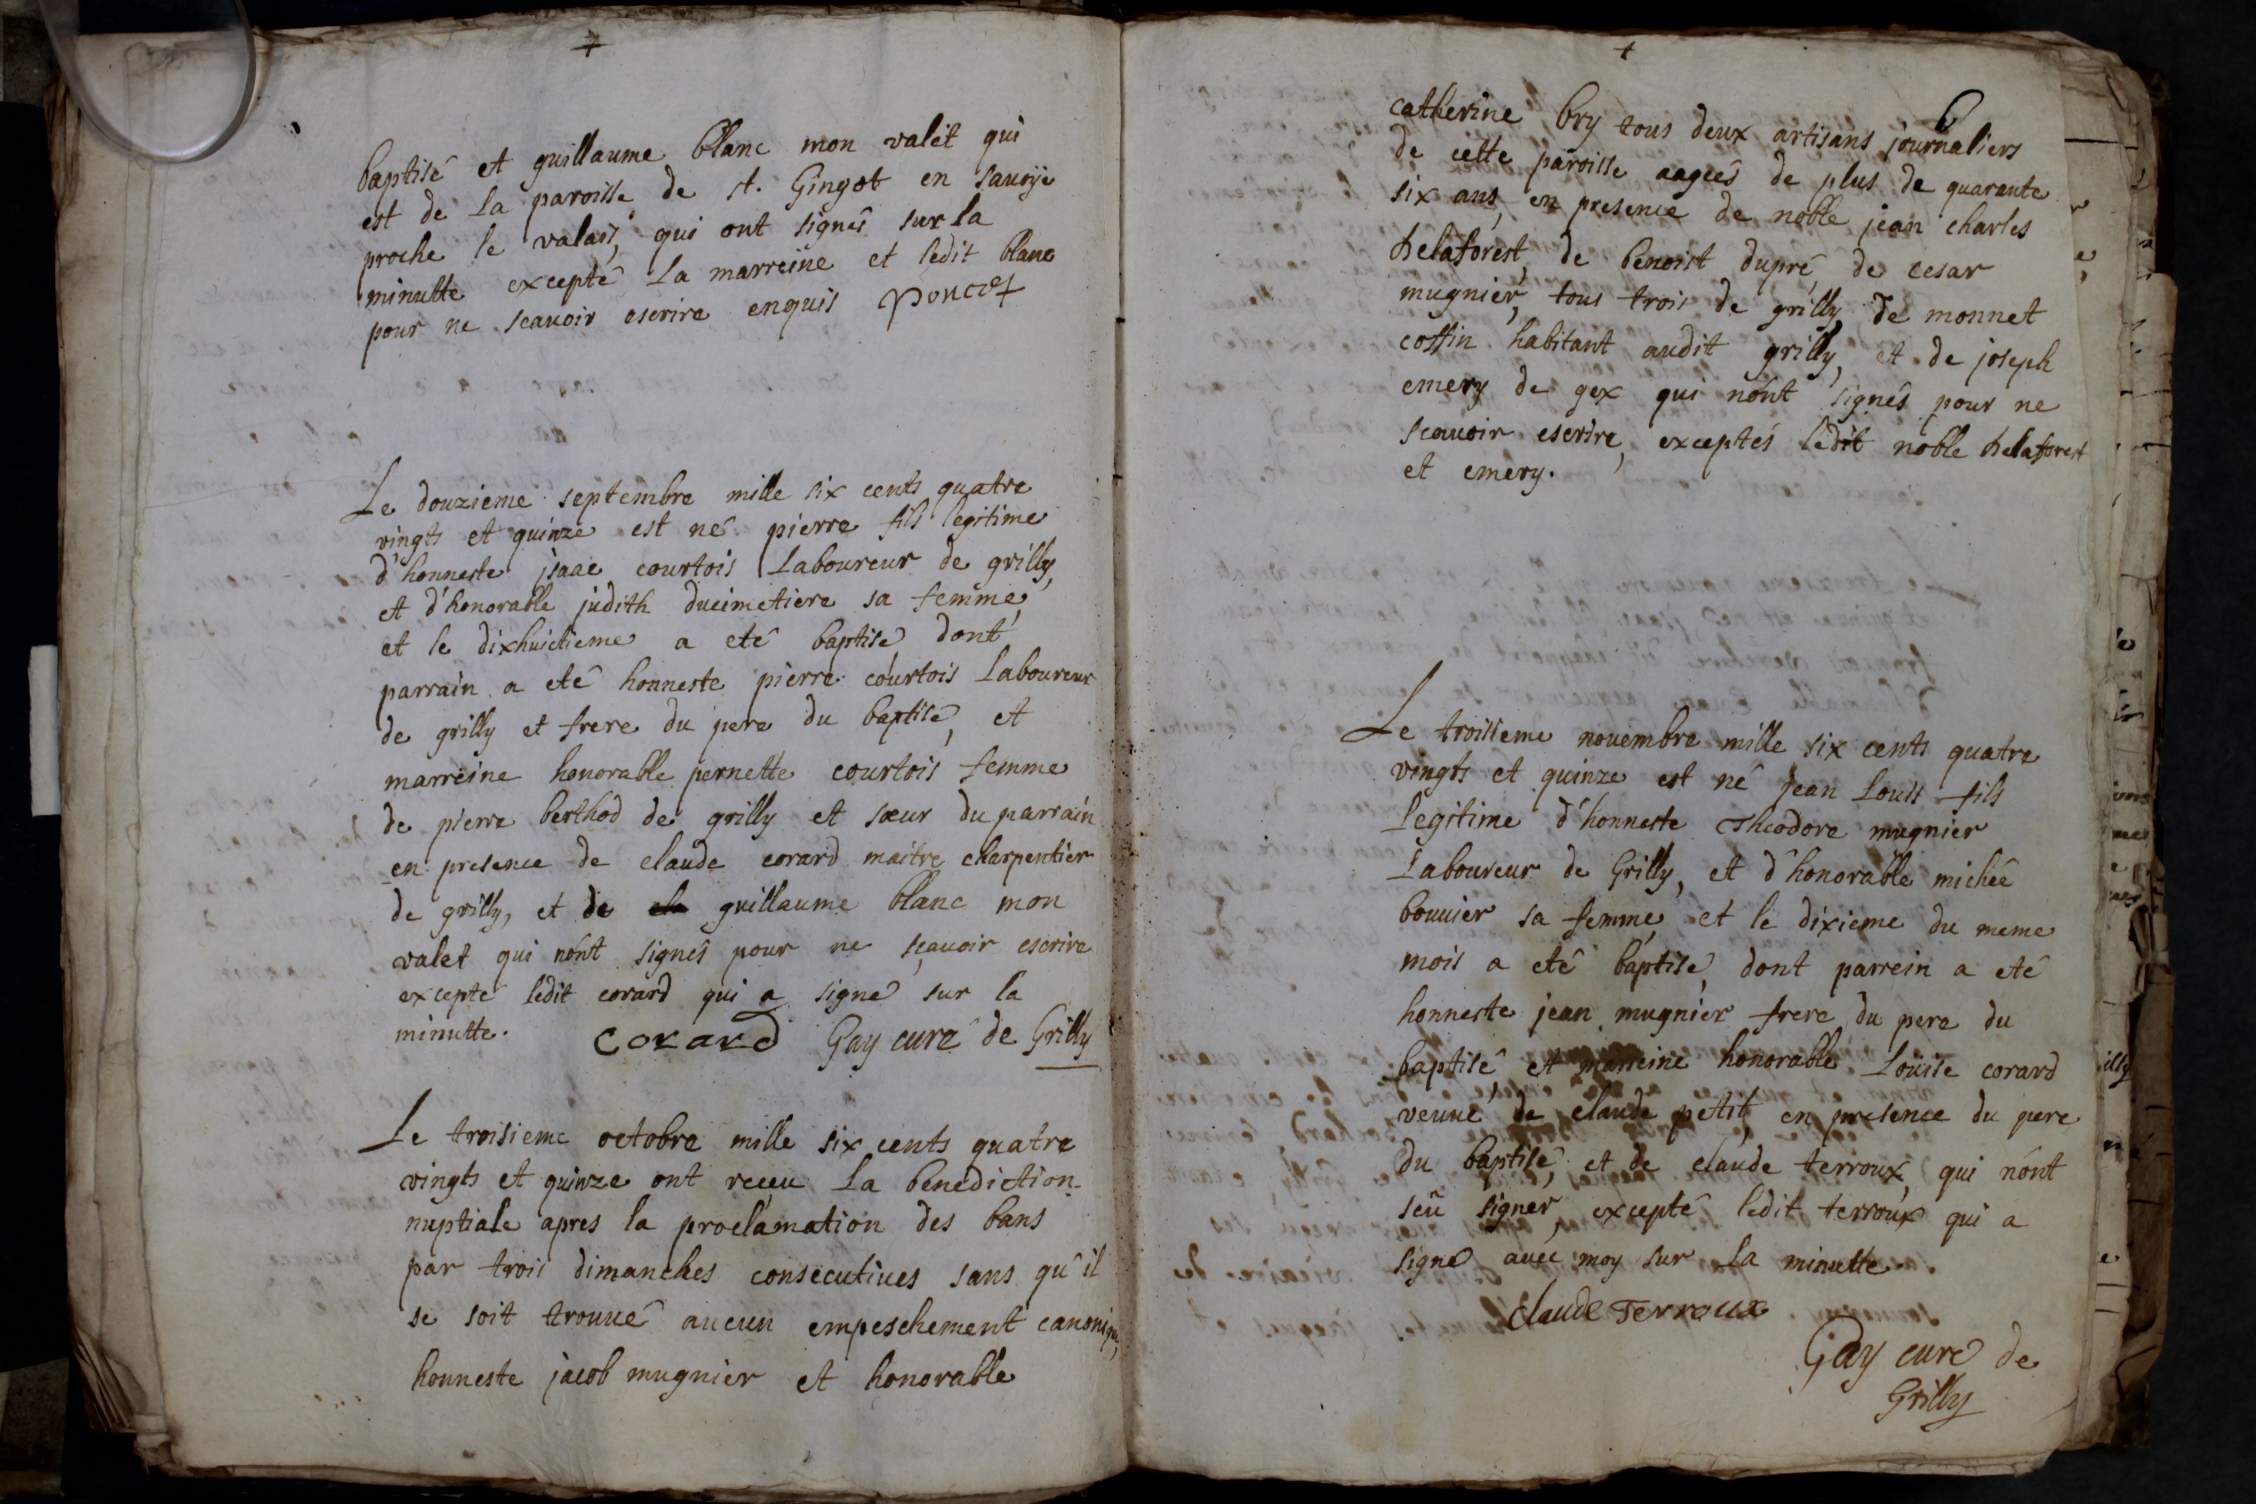 baptisé et guillaume blanc mon valet qui
est de la paroisse de st. Gingot en savoije
proche le valais, qui ont signés sur la
minutte excepté la marreine et ledit blanc
pour ne scauoir escrire enquis Poncet
Le douzieme septembre mille six cents quatre
vingts et quinze est né pierre fils legitime
d'honneste jsaac courtois laboureur de grilly,
et d'honorable judith ducimetiere sa femme,
et le dixhuictieme a eté baptisé, dont
parrain a eté honneste pierre courtois laboureur
de grilly et frere du pere du baptisé, et
marreine honorable pernette courtois femme
de pierre berthod de grilly et sœur du parrain
en presence de claude corard maitre charpentier
de grilly, et de cla guillaume blanc mon
valet qui n'ont signés pour ne sçauoir escrire
excepté ledit corard qui a signé sur la
minutte. corard Gay curé de Grilly
Le troisieme octobre mille six cents quatre
vingts et quinze ont receu la benediction
nuptiale apres la proclamation des bans
par trois dimanches consecutiues sans qu'il
se soit trouué aucun empeschement canonique,
honneste jacob mugnier et honorable
catherine bry tous deux artisans journaliers
de cette paroisse aagés de plus de quarante
six ans, en presence de noble jean charles
delaforest, de benoist dupré de cesar
mugnier, tous trois de grilly, de monnet
cossin habitant audit grilly, et de joseph
emery de gex qui n'ont signés pour ne
scauoir escrire, exceptés ledit noble delaforest
et emery.
6
Le troisieme nouembre mille six cents quatre
vingts et quinze est né jean louis fils
legitime d'honneste Theodore mugnier
laboureur de Grilly, et d'honorable michée
bouuier sa femme, et le dixieme du meme
mois a eté baptisé, dont parrein a eté
honneste jean mugnier frere du pere du
baptisé et marreine honorable Louise corard
veuue de claude petit, en presence du pere
du baptisé, et de claude terroux, qui n'ont
seû signer, excepté ledit terroux qui a
signé auec moy sur la minutte.
claude Terroux
Gay curé de
Grilly